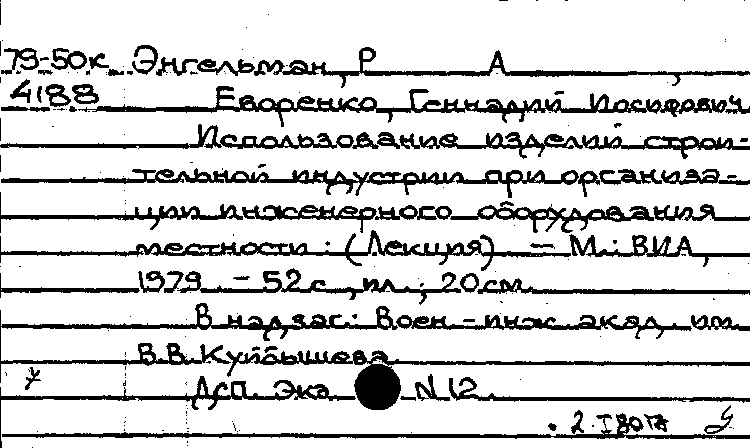 79-50к Энгельман, Р А ,
4188 Еворенко, Геннадий Иосифович
Использование изделий строи-
тельной индустрии при организа-
ции инженерного оборудования
местности : (Лекция) — М.: ВИА,
1979. - 52 с., ил.; 20 см.
В надзаг.: Воен.-инж. акад. им.
В.В. Куйбышева
ДСП. Экз N 12.